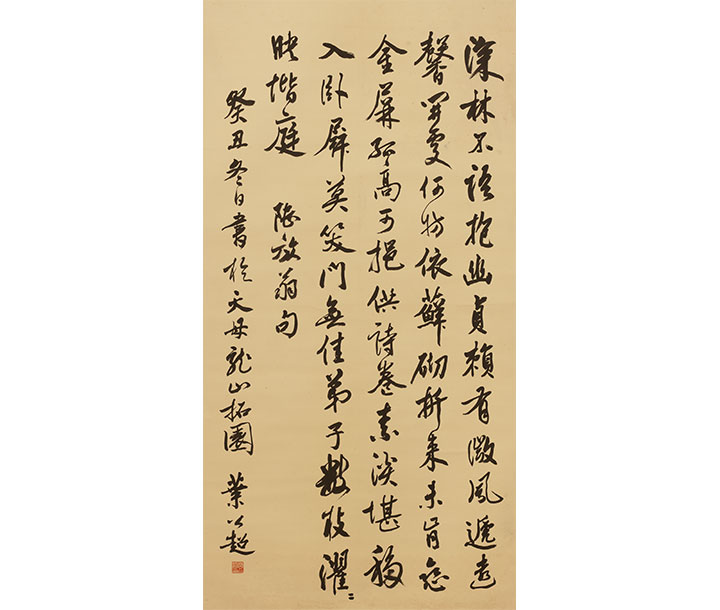 深林不語抱幽貞賴有微風遞遠
馨開處何妨依蘚砌折來未肯戀
金屏孤高可挹供詩卷素淡堪移
入臥屏莫笑門無佳弟子數枝濯〻
映階庭 陸放翁句
癸丑冬日書於天母龍山拓園 葉公超